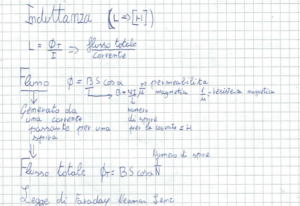 Induttanza (L ⇒ [H])
L = Φт/I ⇒ flusso totale/corrente
Flusso Φ = B S cosα
μ = permeabilità
B = μH magnetica 1/μ = resistenza magnetica
Generato da
una corrente
passante per una
spira
numero
di spire
per la corrente = H
Numero di spire
Flusso totale Φт = B S cosα N
Legge di Faraday Neuman Lenz